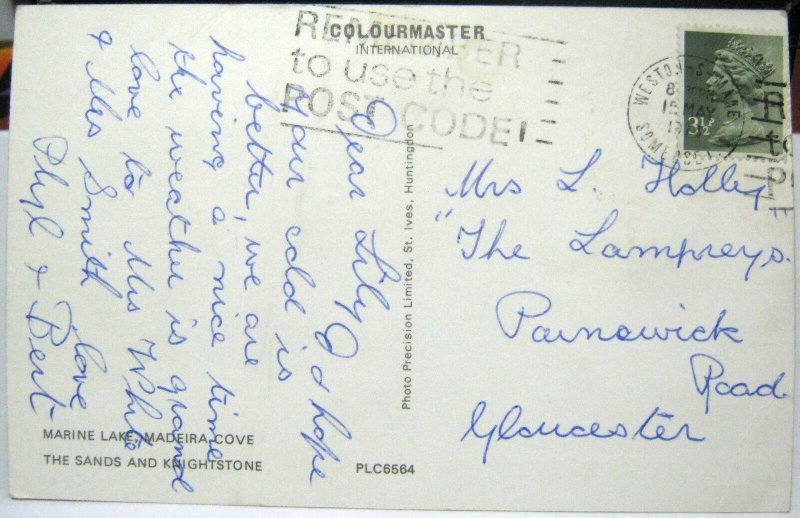 COLOURMASTER
INTERNATIONAL
REMEMBER
to use the
POST CODE!
WESTON-S-MARE
MAY
SOMERSET
3½P
Dear Lily I hope
your cold is
better, we are
having a nice time
the weather is grand
love to Mrs White
& Mrs Smith
love
Phyl & Bert
Photo Precision Limited, St. Ives, Huntingdon
Mrs L. Holley
"The Lampreys.
Painswick
Road
Gloucester
MARINE LAKE, MADEIRA COVE
THE SANDS AND KNIGHTSTONE
PLC6564